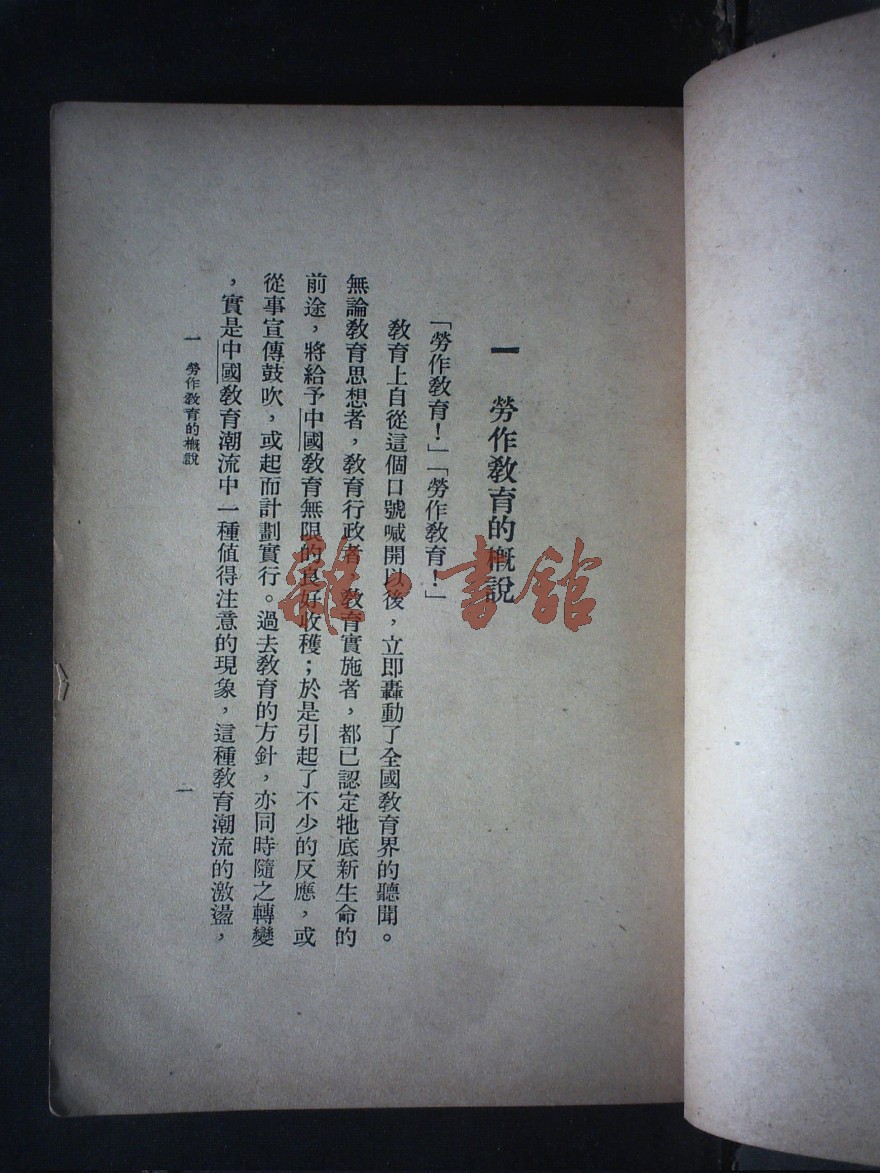 一 勞作教育的概說
「勞作教育！」「勞作教育！」
教育上自從這個口號喊開以後，立即轟動了全國教育界的聽聞。
無論教育思想者，教育行政者，教育實施者，都已認定牠底新生命的
前途，將給予中國教育無限的良好收穫；於是引起了不少的反應，或
從事宣傳鼓吹，或起而計劃實行。過去教育的方針，亦同時隨之轉變
，實是中國教育潮流中一種值得注意的現象，這種教育潮流的激盪，
一 勞作教育的概說
一
雜·書館